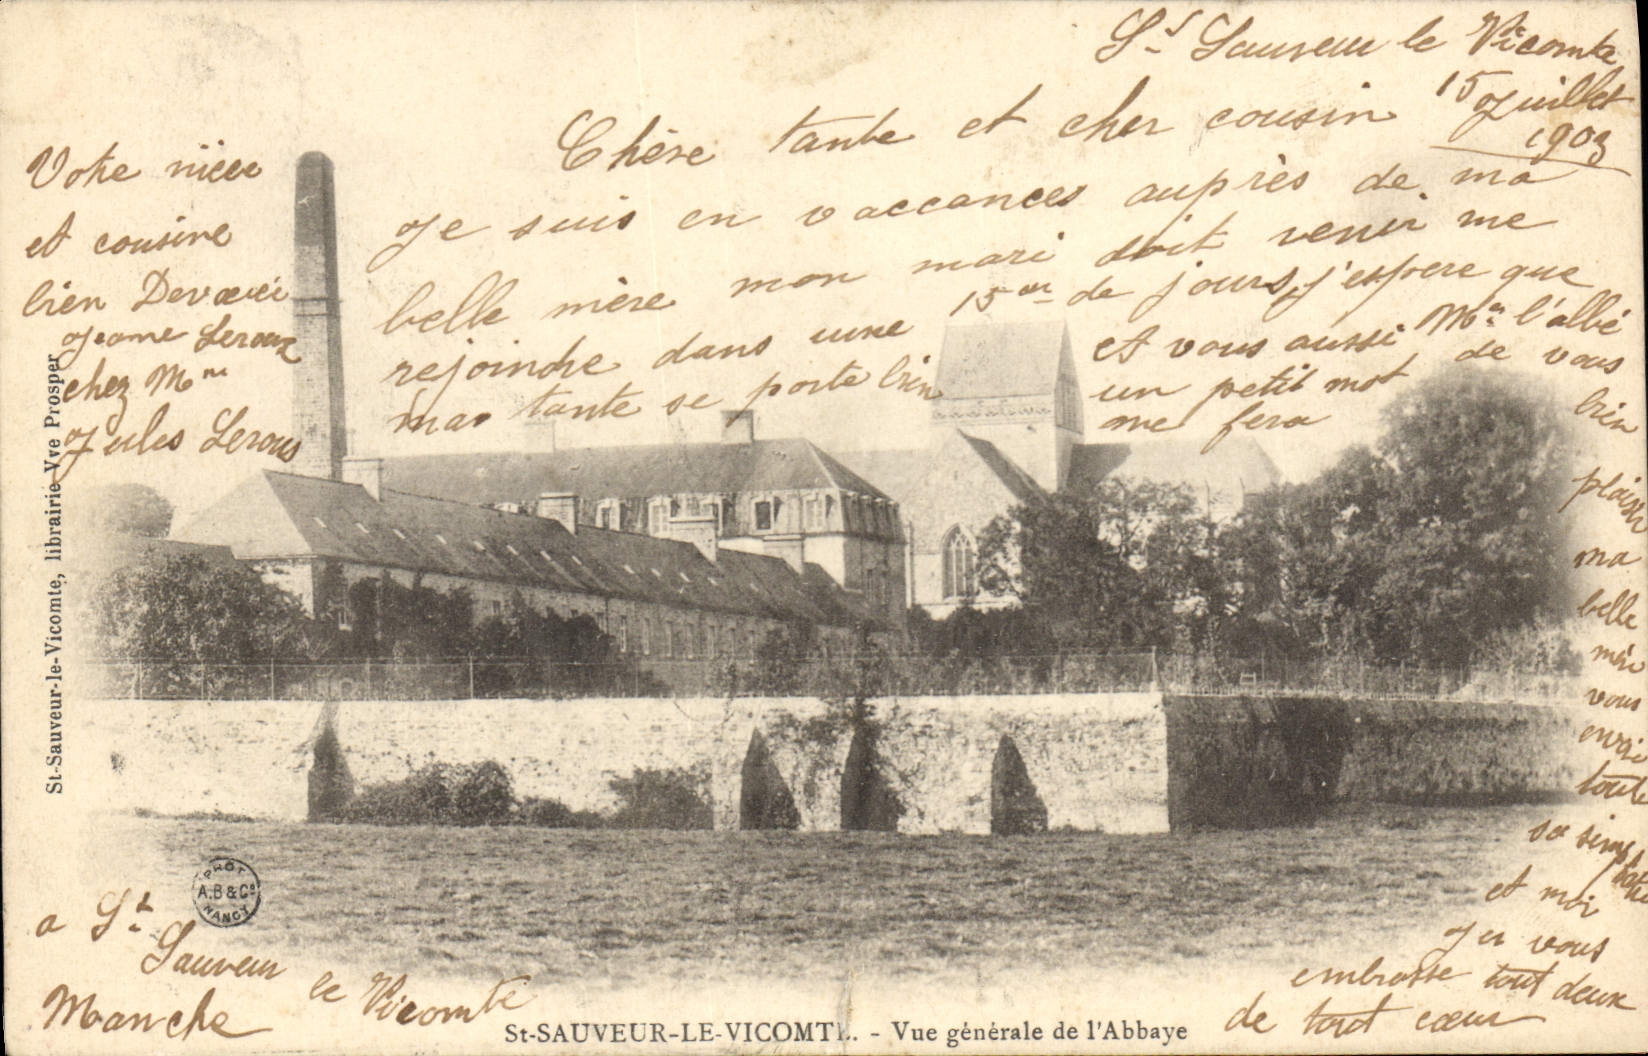 St Sauveur le Vicomte
15 Juillet
1903
Chère tante et cher cousin
Je suis en vaccances auprès de ma
belle mère mon mari doit venir me
rejoindre dans une 15en de jours, j'espere que
ma tante se porte bien
et vous aussi Mr l'abbé
un petit mot de vous
me fera bien
plaisir
ma
belle
mère
vous
envoie
toute
sa simpathie
et moi
je vous
embrasse tout deux
de tout cœur
Votre nièce
et cousine
bien
Jeanne Leroux
chez Mme
Jules Leroux
a St
Sauveur
le Vicomte
Manche
St-Sauveur-le-Vicomte, librairie Vve Prosper
PHOT
A.B & Cie
NANCY
St-SAUVEUR-LE-VICOMTE. - Vue générale de l'Abbaye